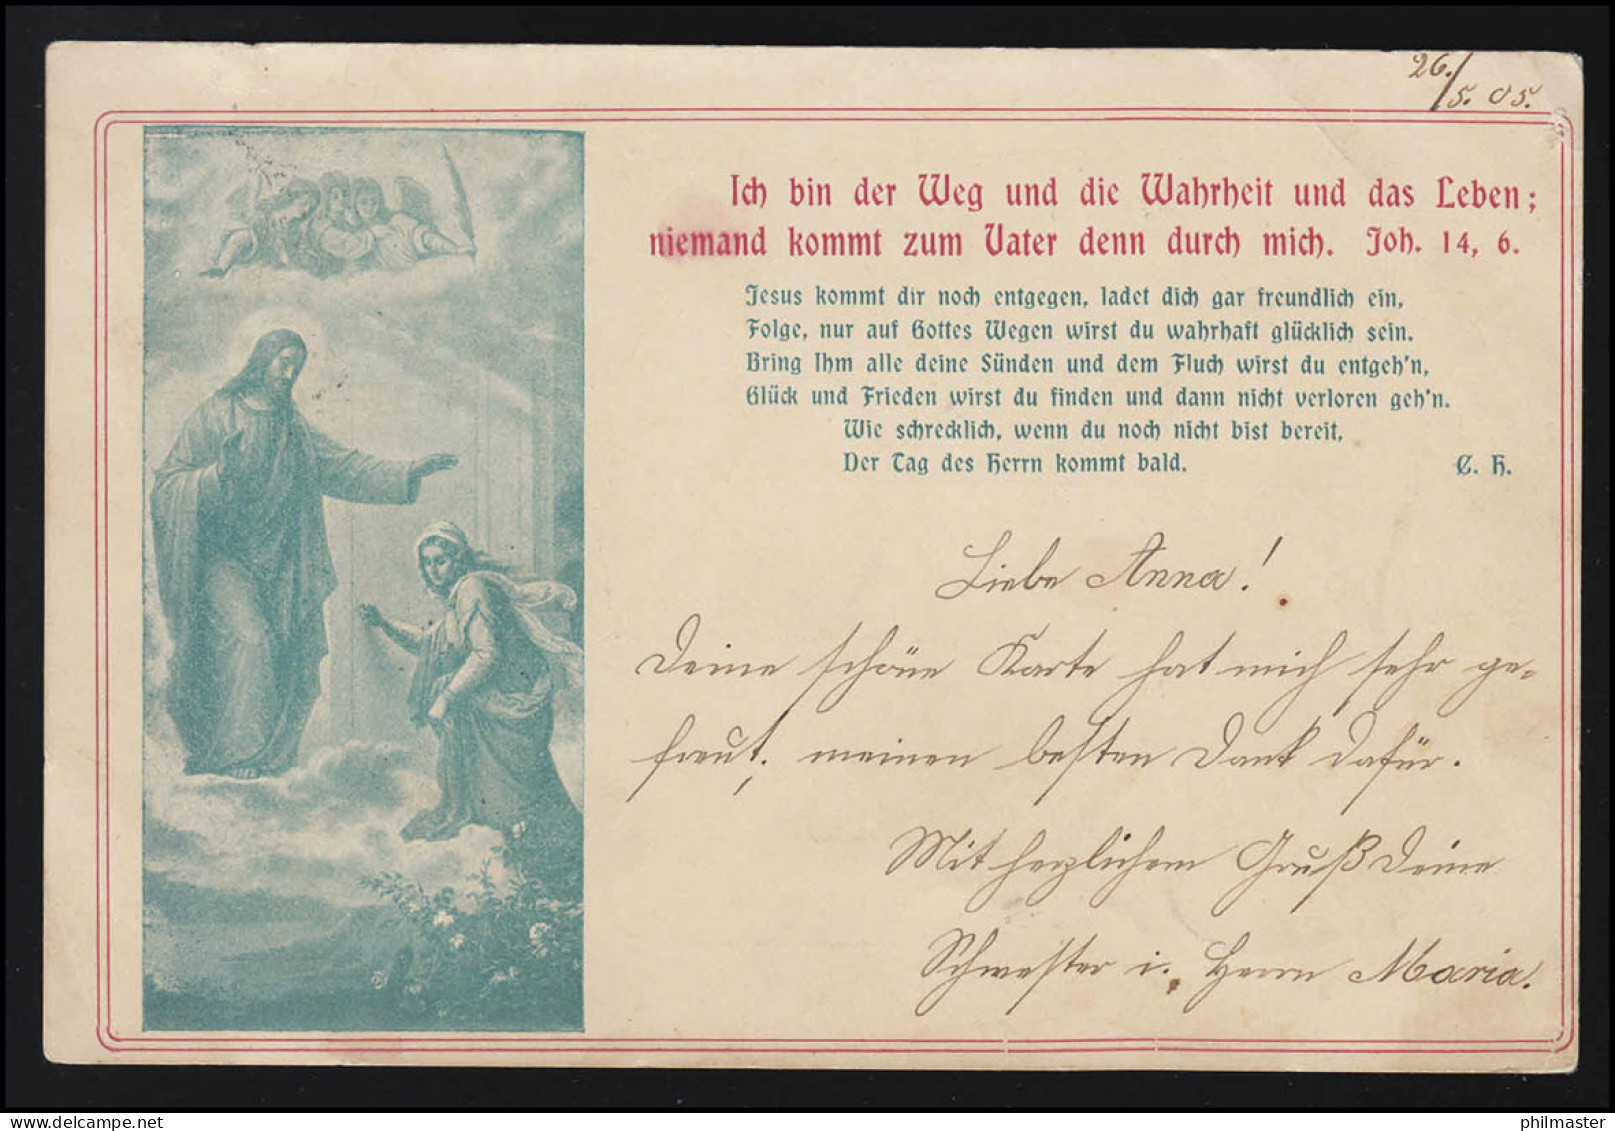 26./5. 05.
Ich bin der Weg und die Wahrheit und das Leben;
niemand kommt zum Vater denn durch mich. Joh. 14, 6.
Jesus kommt dir noch entgegen, ladet dich gar freundlich ein,
Folge, nur auf Gottes Wegen wirst du wahrhaft glücklich sein.
Bring Ihm alle deine Sünden und dem Fluch wirst du entgeh'n,
Glück und Frieden wirst du finden und dann nicht verloren geh'n.
Wie schrecklich, wenn du noch nicht bist bereit,
Der Tag des Herrn kommt bald. C. H.
Liebe Anna!
Deine schöne Karte hat mich sehr ge-
freut, meinen besten Dank dafür.
Mit herzlichem Gruß Deine
Schwester i. Herrn Maria.
www.delcampe.net
philmaster